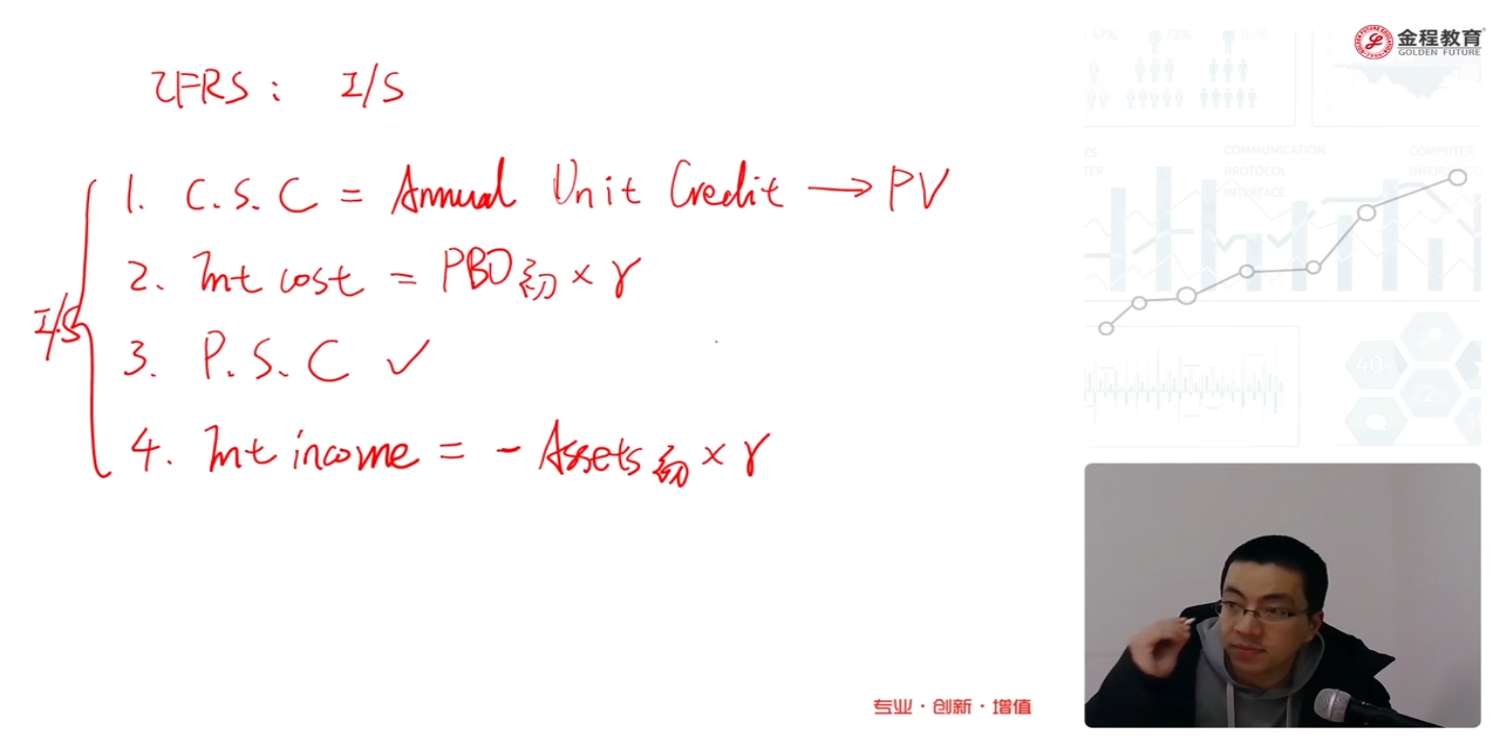 金程教育
GOLDEN FUTURE
IFRS: I/S
1. C.S.C = Annual Unit Credit → PV
2. Int cost = PBO初 × r
I/S
3. P.S.C ✓
4. Int income = - Assets初 × r
COMMUNICATION
PROTOCOL
INTERFACE
COMPUTER
专业·创新·增值